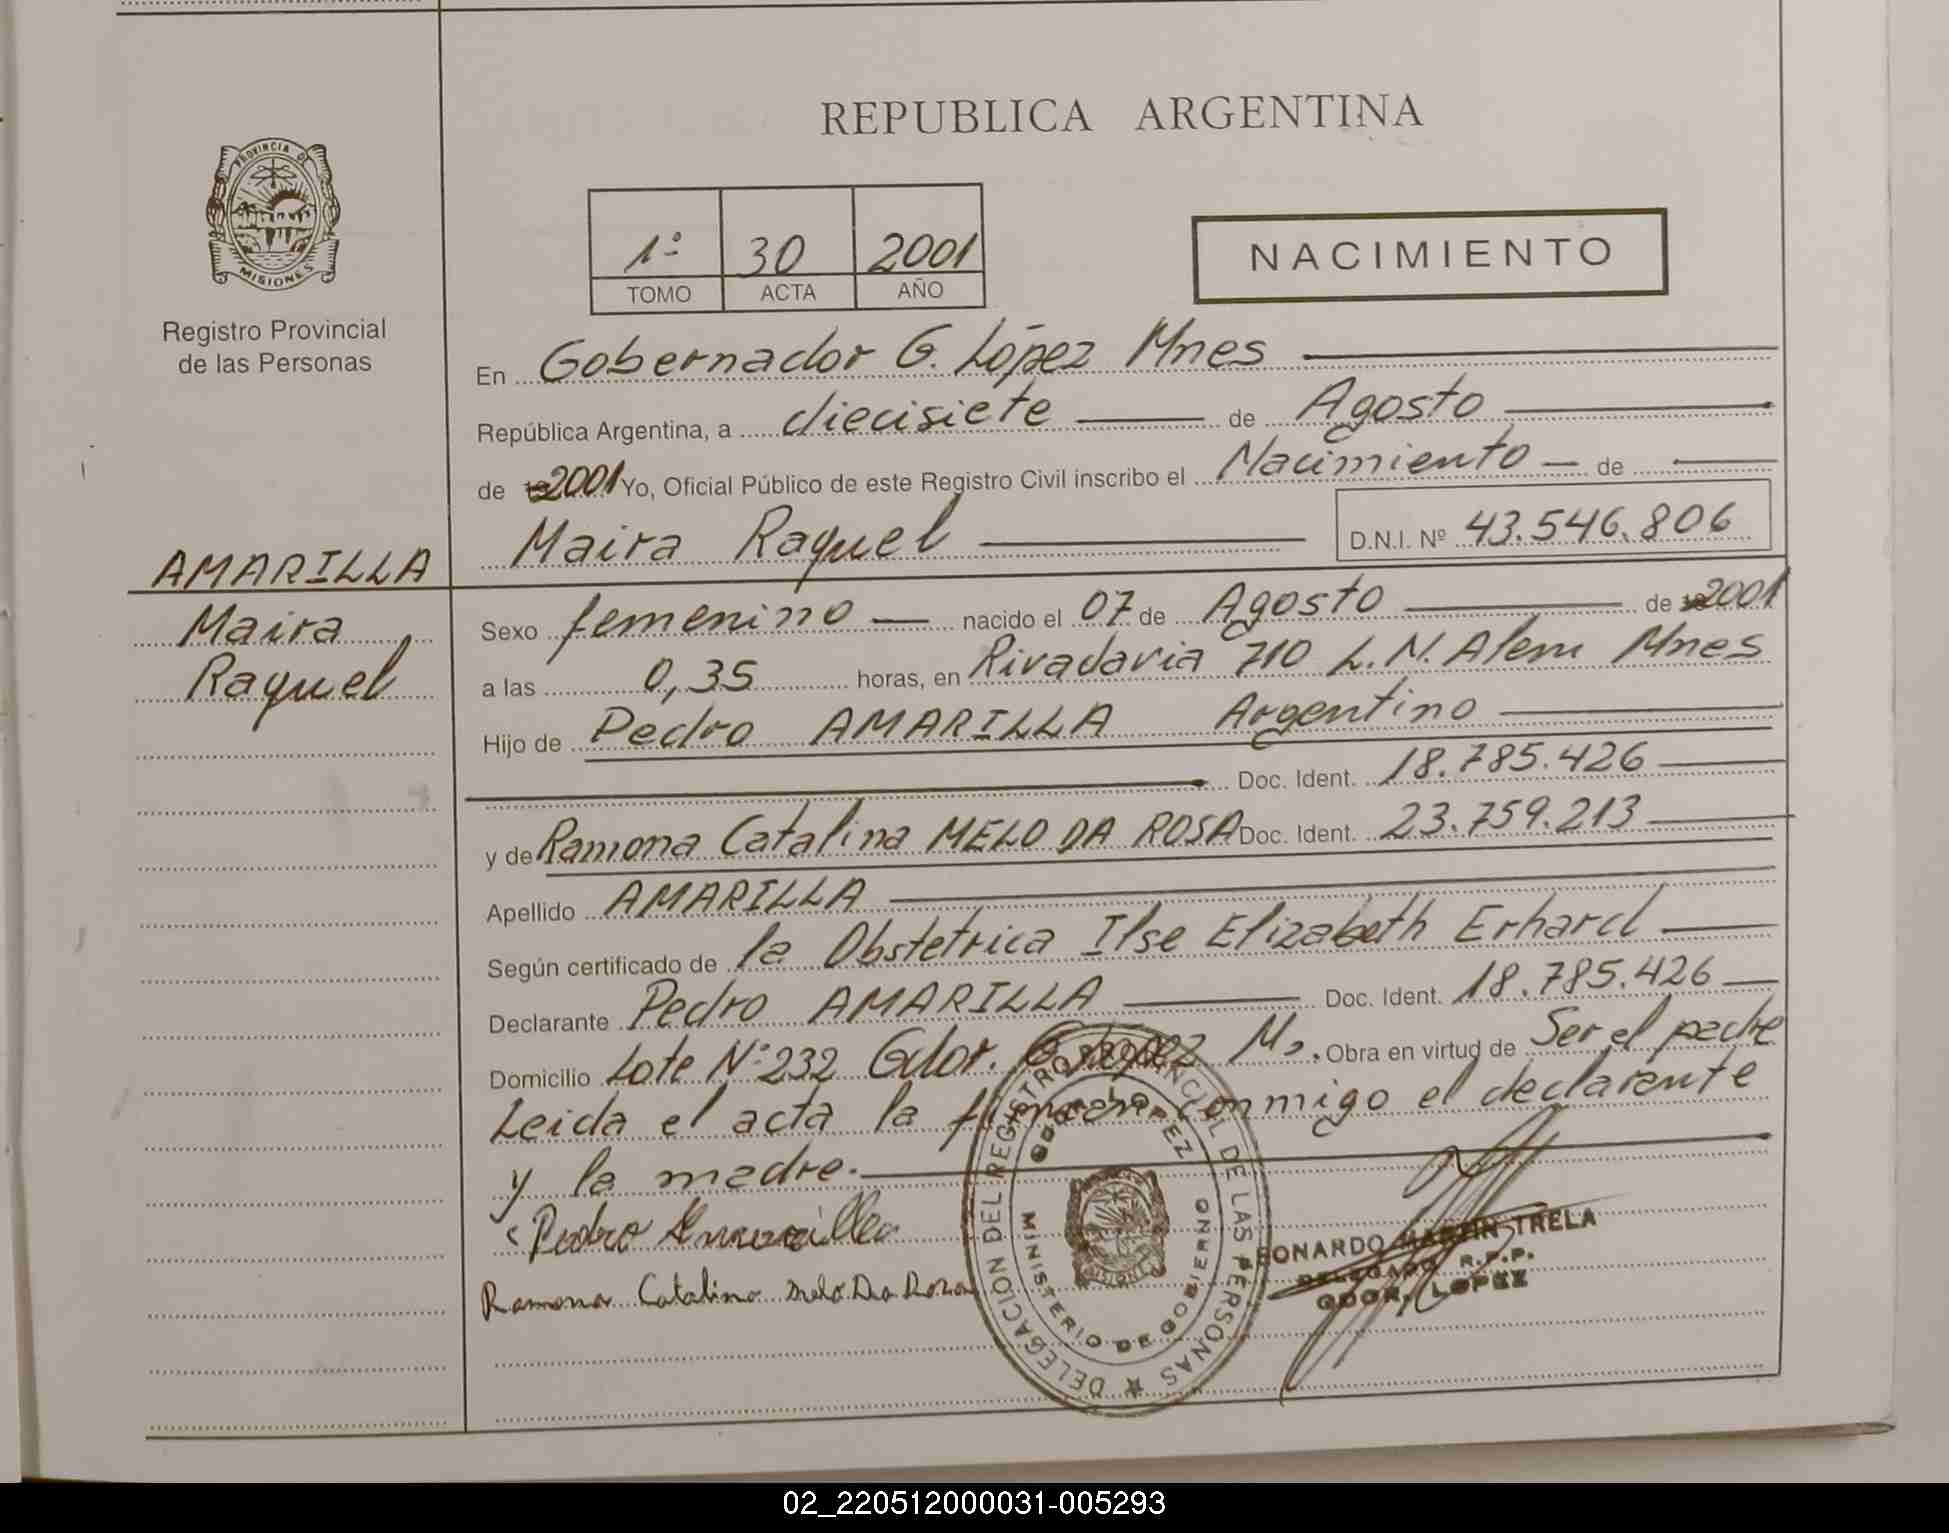 REPUBLICA ARGENTINA
PROVINCIA DE
MISIONES
Registro Provincial
de las Personas
1º 30 2001
TOMO ACTA AÑO
NACIMIENTO
En Gobernador G. López Mnes
República Argentina, a diecisiete de Agosto
de 2001 Yo, Oficial Público de este Registro Civil inscribo el Nacimiento de
Maira Raquel D.N.I. Nº 43.546.806
AMARILLA
Maira
Raquel
Sexo femenino nacido el 07 de Agosto de 2001
a las 0,35 horas, en Rivadavia 710 L.N. Alem Mnes
Hijo de Pedro AMARILLA Argentino
Doc. Ident. 18.785.426
y de Ramona Catalina MELO DA ROSA Doc. Ident. 23.759.213
Apellido AMARILLA
Según certificado de la Obstetrica Ilse Elizabeth Erhard
Declarante Pedro AMARILLA Doc. Ident. 18.785.426
Domicilio Lote Nº 232 Gdor. López M. Obra en virtud de Ser el padre
Leida el acta la firman conmigo el declarante
y la madre.
Pedro Amarilla
Ramona Catalina Melo Da Rosa
DELEGACION DEL REGISTRO PROVINCIAL DE LAS PERSONAS
GDOR. LOPEZ
MINISTERIO DE GOBIERNO
MISIONES
LEONARDO MARTIN TRELA
DELEGADO R.P.P.
GDOR. LOPEZ
02_220512000031-005293